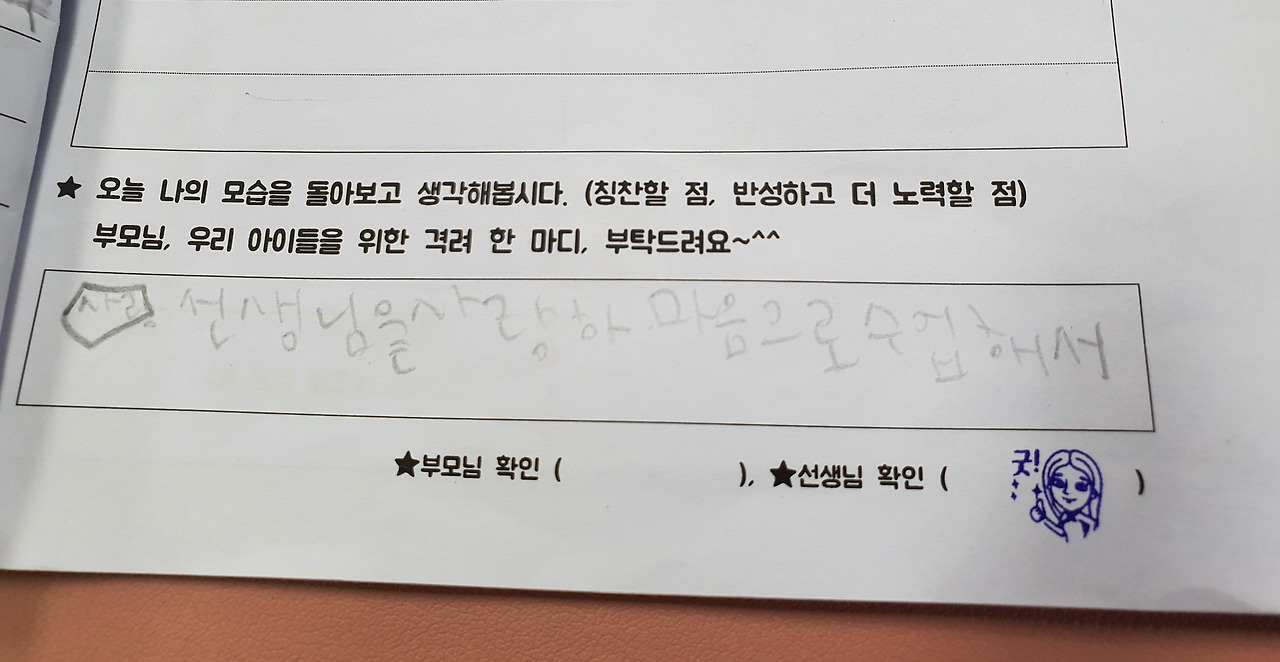 ★ 오늘 나의 모습을 돌아보고 생각해봅시다. (칭찬할 점, 반성하고 더 노력할 점)
부모님, 우리 아이들을 위한 격려 한 마디, 부탁드려요~^^
사랑 선생님을 사랑하 마음으로 수업해서
★부모님 확인 ( ), ★선생님 확인 ( 굿! )